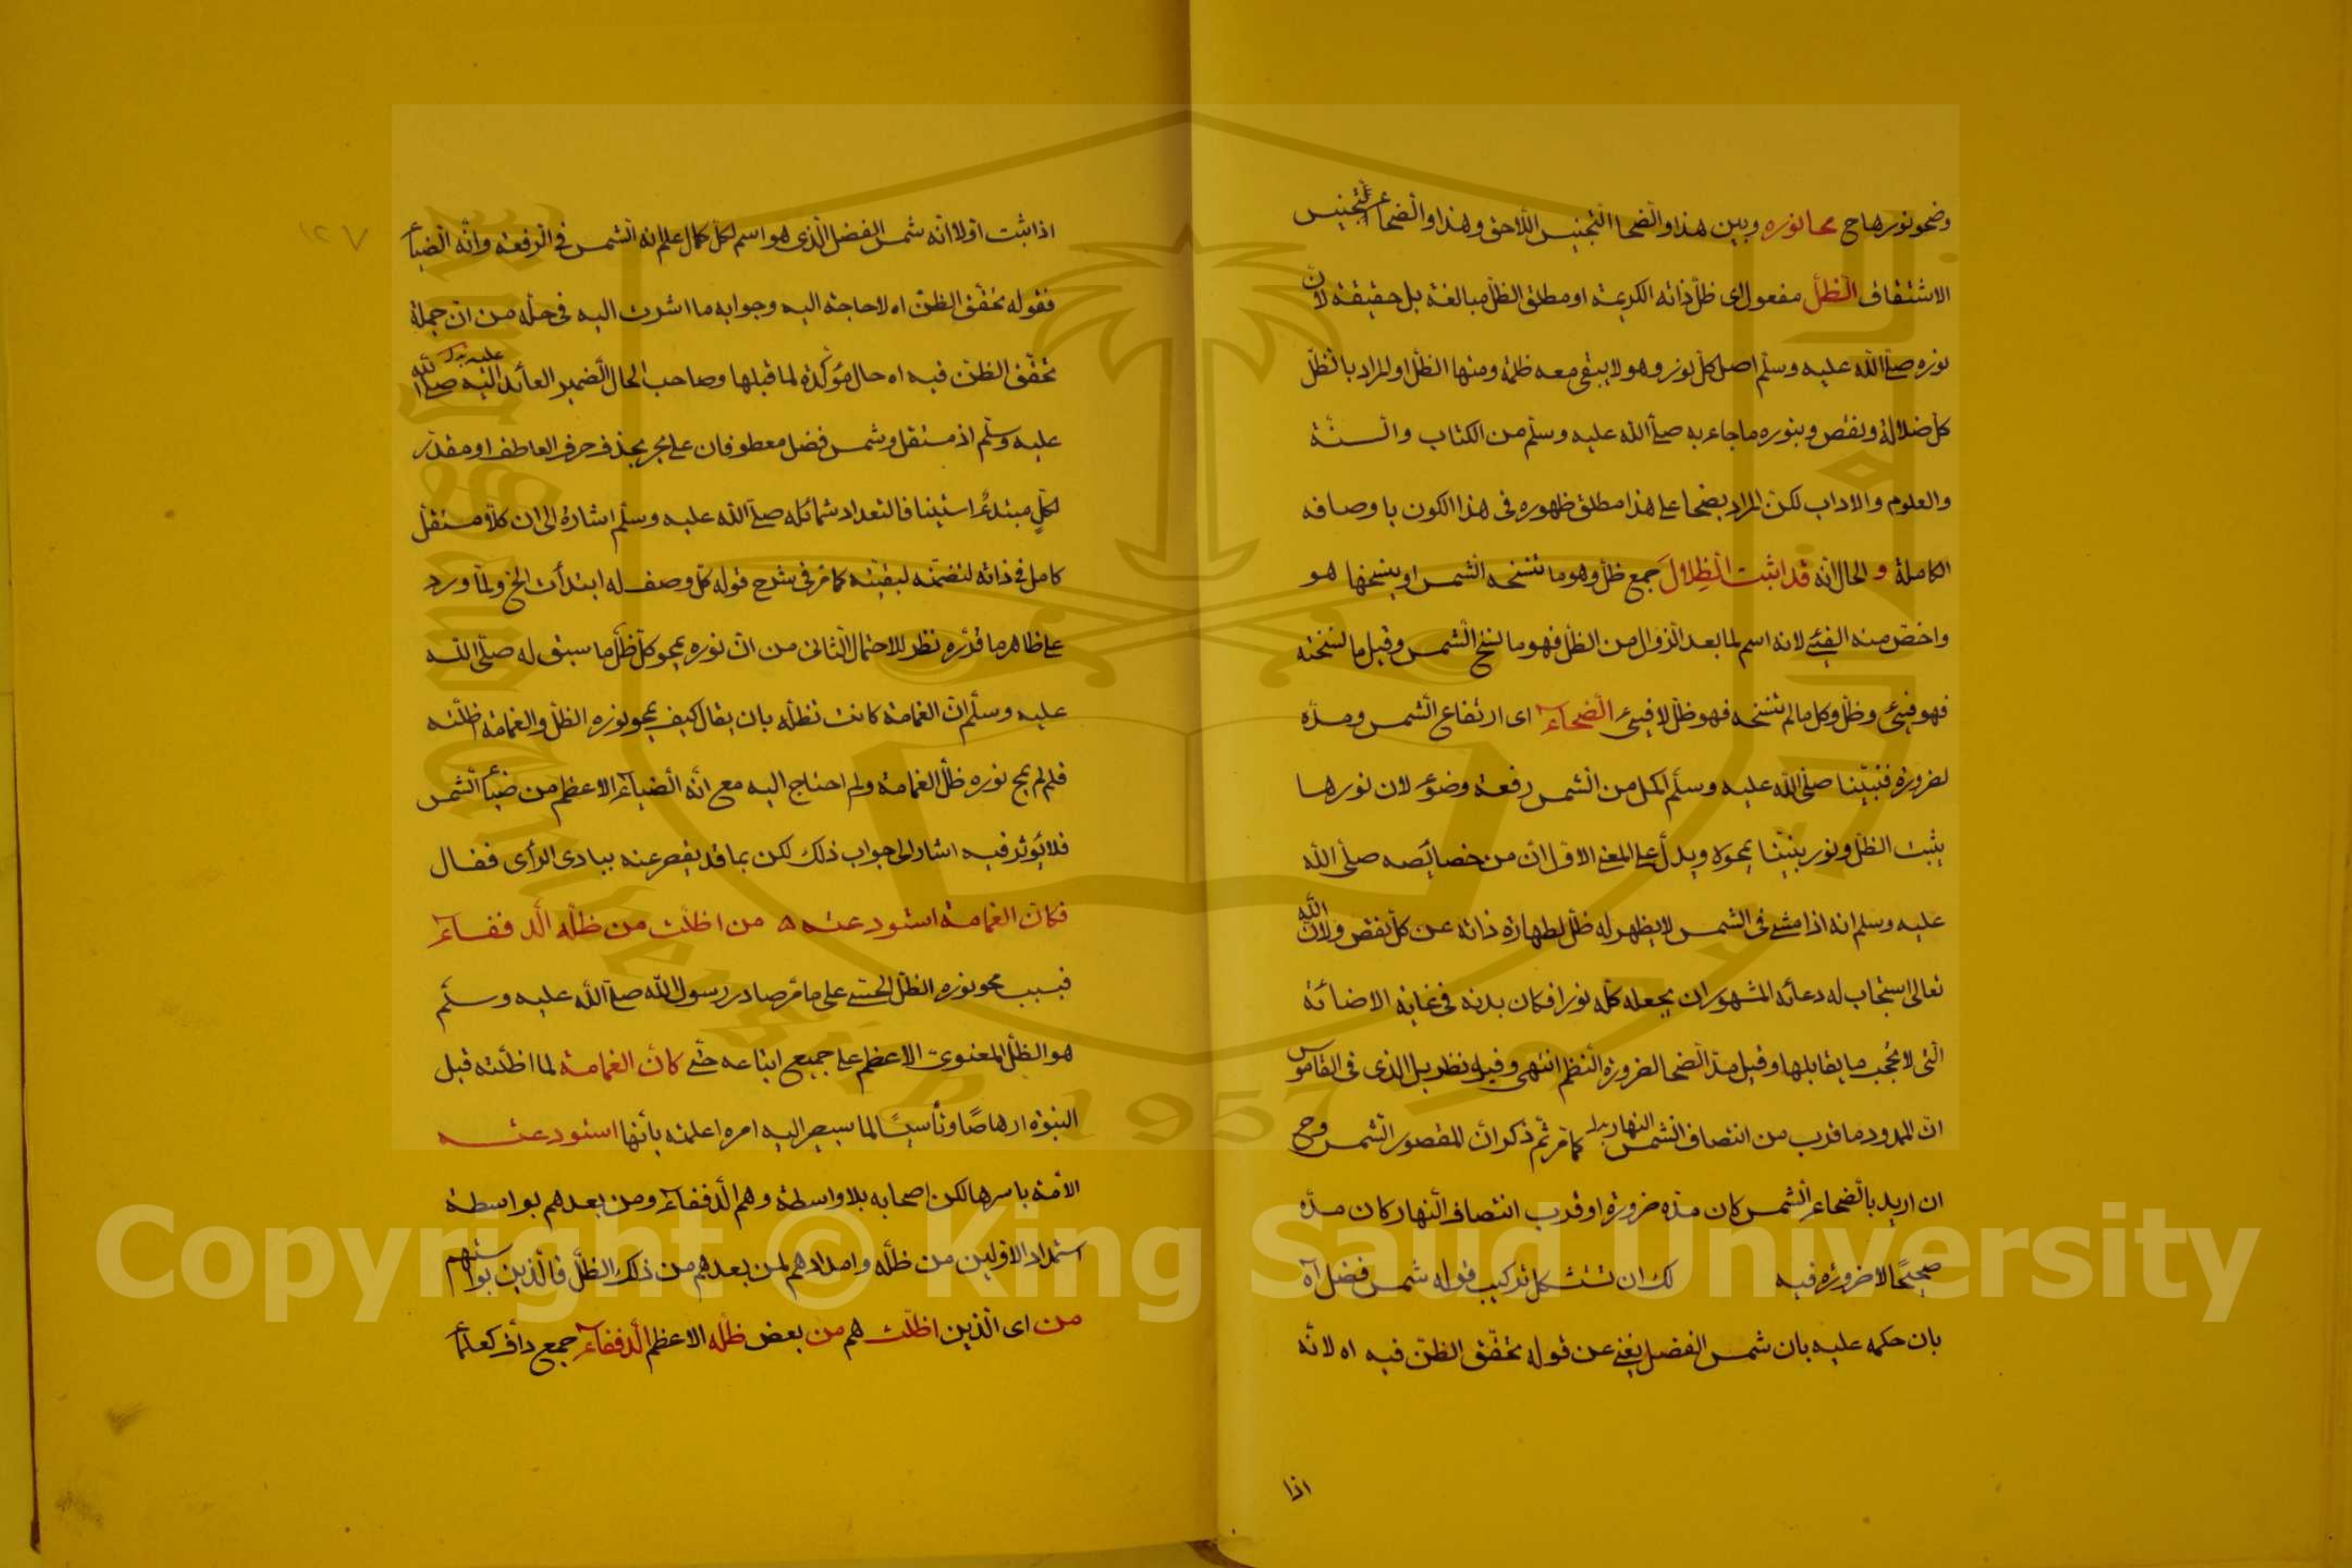 وضحو نورها ح محا نوره وبين هذا والضحا التجنيس اللاحق وهذا والضحاء التجنيس
الاشتقاق الظل مفعول اى ظل ذاته الكريمة او مطلق الظل مبالغة بل حقيقة لان
نوره صلى الله عليه وسلم اصل كل نور وهو لا يبقى معه ظلمة ومنها الظل او المراد بالظل
كل ضلالة ونقص وبنوره ما جاء به صلى الله عليه وسلم من الكتاب والسنة
والعلوم والاداب لكن المراد بضحا على هذا مطلق ظهوره فى هذا الكون باوصافه
الكاملة و الحال انه قد اثبت الظلال جمع ظل وهو ما تنسخه الشمس او ينسخها هو
واخص منه الفيئ لانه اسم لما بعد الزوال من الظل فهو ما نسخ الشمس وقبل ما نسخته
فهو فيئ وظل وكل ما لم تنسخه فهو ظل لا فيئ الضحاء اى ارتفاع الشمس ومده
لضرورة فنبينا صلى الله عليه وسلم اكمل من الشمس رفعة وضوء لان نورها
يثبت الظل ونور نبينا يمحوه ويدل على المعنى الاول ان من خصائصه صلى الله
عليه وسلم انه اذا مشى فى الشمس لا يظهر له ظل لطهارة ذاته عن كل نقص ولان الله
تعالى استجاب له دعائه المشهور ان يجعله كله نورا فكان بدنه فى غاية الاضائة
التى لا تحجب ما يقابلها وقيل مد الضحا لضرورة النظم انتهى وفيه نظر بل الذى فى القاموس
ان الممدود ما قرب من انتصاف الشمس النهار بدل كما مر ثم ذكر ان المقصور الشمس وح
ان اريد بالضحاء الشمس كان مده ضرورة او قرب انتصاف النهار كان مده
صحيحا لا ضرورة فيه لك ان تستشكل تركيب قوله شمس فضل اه
بان حكمه عليه بان شمس الفضل يغنى عن قوله تحقق الظن فيه اه لانه
اذا
١٢٧
اذا ثبت اولا انه شمس الفضل الذى هو اسم لكل كمال علم انه الشمس فى الرفعة وانه الضياء
فقوله تحقق الظن اه لا حاجة اليه وجوابه ما اشرت اليه فى حله من ان جملة
تحقق الظن فيه اه حال مؤكدة لما قبلها وصاحب الحال الضمير العائد اليه عليه بدل صلى الله
عليه وسلم اذ مستقل وشمس فضل معطوفان على بحر بحذف حرف العاطف او مقدر
لكل مبتدء استينافا لتعداد شمائله صلى الله عليه وسلم اشارة الى ان كلا مستقل
كامل فى ذاته لتضمنه لبقيته كما مر فى شرح قوله كل وصف له ابتدأت الخ ولما ورد
على ظاهر ما قرره نظر للاحتمال الثانى من ان نوره يمحو كل ظل ما سبق له صلى الله
عليه وسلم ان الغمامة كانت تظله بان يقال كيف يمحو نوره الظل والغمامة اظلته
فلم لم يمح نوره ظل الغمامة ولم احتاج اليه مع انه الضياء الاعظم من ضياء الشمس
فلا يؤثر فيه اشار الى جواب ذلك لكن بما قد يقصر عنه ببادى الرأى فقال
فكان الغمامة استودعته ه من اظلت من ظله الدففاء
فبسبب محو نوره الظل الحسى على ما مر صار رسول الله صلى الله عليه وسلم
هو الظل المعنوى الاعظم على جميع اتباعه حتى كان الغمامة لما اظلته قبل
النبوة ارهاصا وتأسيسا لما سيصير اليه امره اعلمته بانها استودعته
الامة باسرها لكن اصحابه بلا واسطة وهم الدففاء ومن بعدهم بواسطة
استمداد الاولين من ظله وامدادهم لمن بعدهم من ذلك الظل فالذين بواستهم
من اى الذين اظلت هم من بعض ظله الاعظم الدففاء جمع داف كعلماء